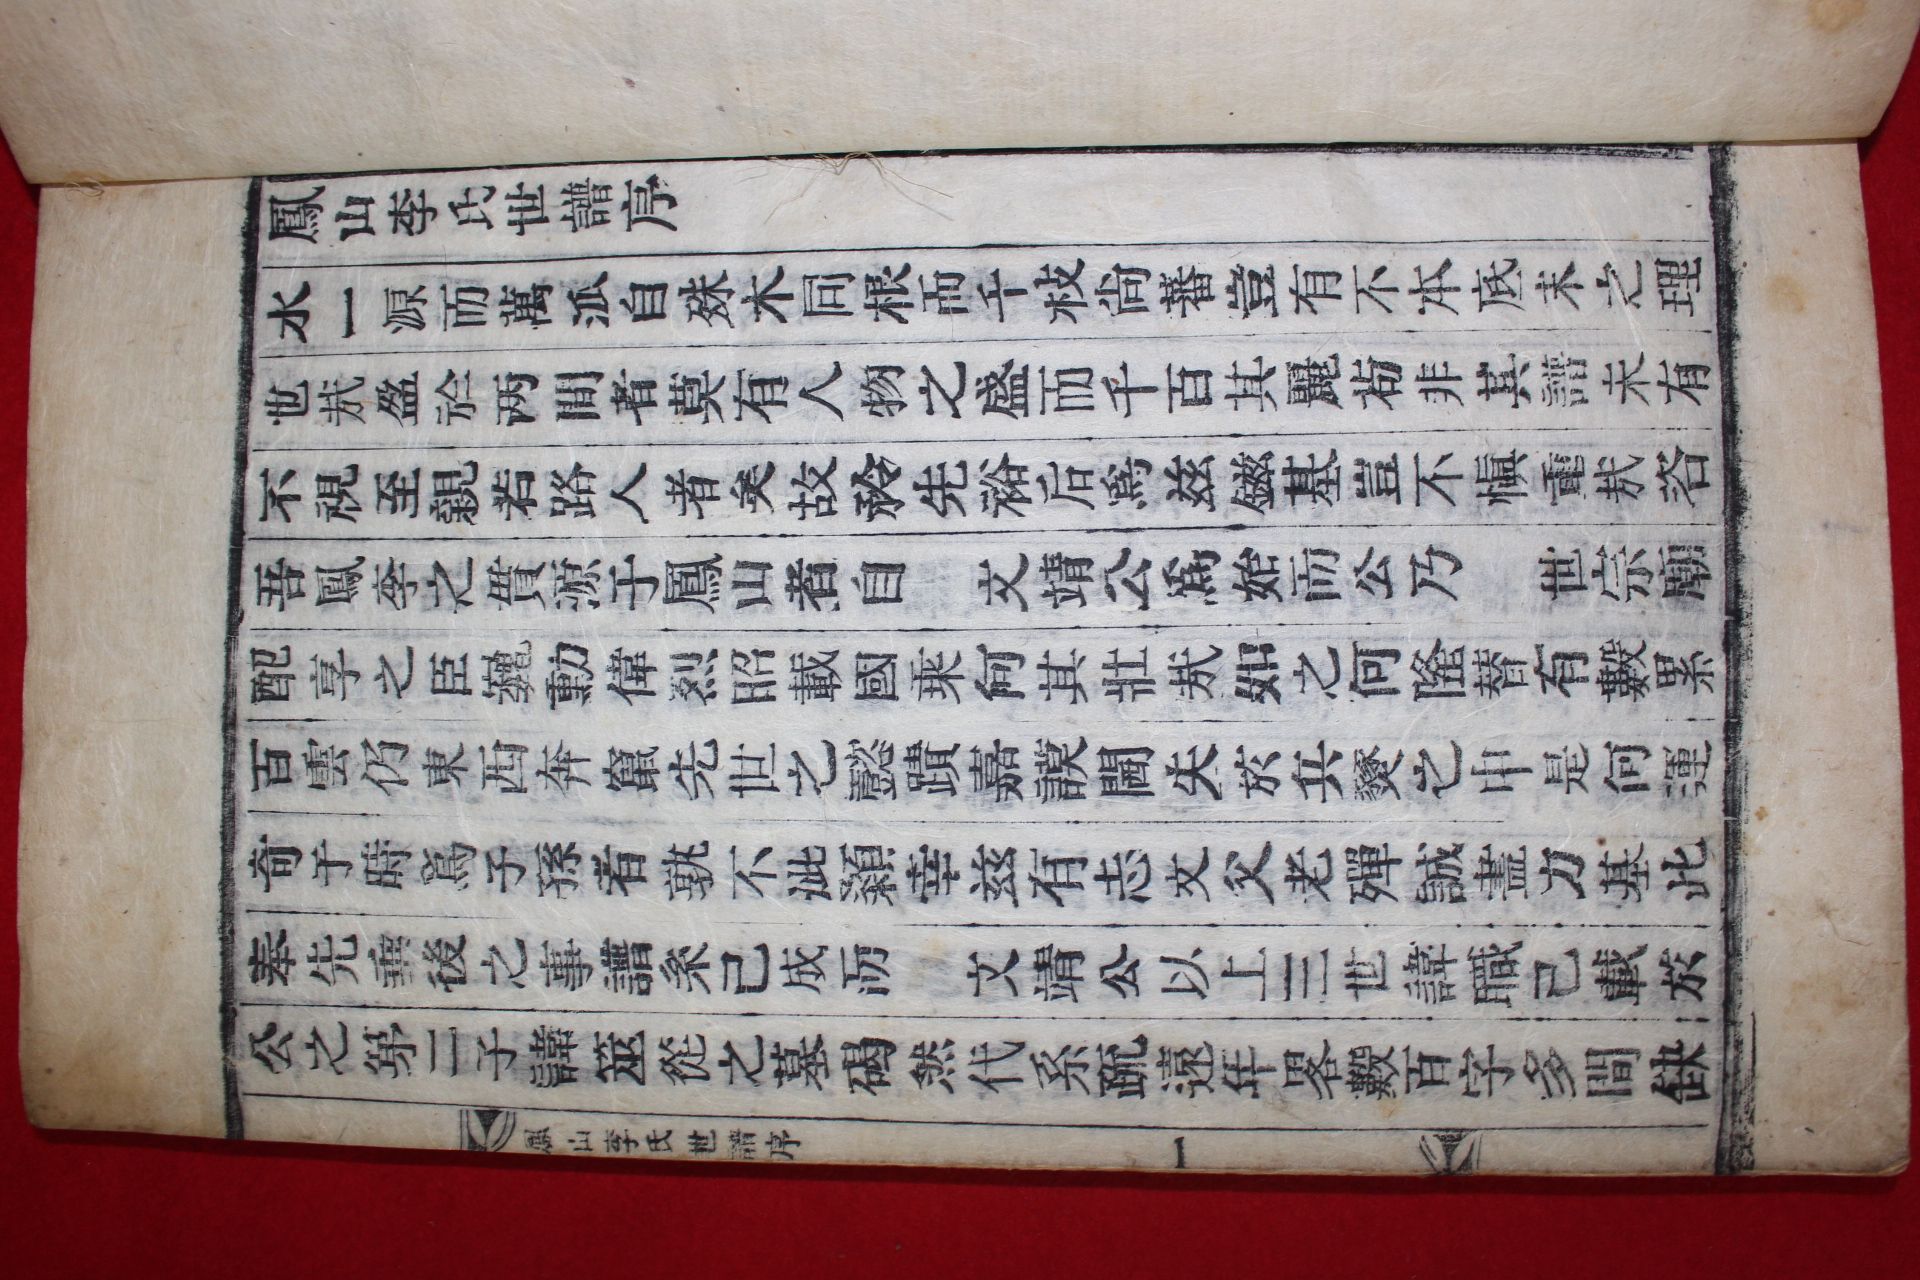 鳳山李氏世譜序
水一源而萬派自殊木同根而千枝尙蕃豈有不本底末之理
也㢤盈於两間者莫有人物之盛而千百其麗苟非其譜未有
不視至親若路人者矣故矜先裕后爲玆鎡基豈不愼重㢤咨
吾鳳李之貫源于鳳山者自 文靖公爲始而公乃 世宗廟
配享之臣巍勳偉烈昭載國乘何其壯㢤如之何隆替有數累
百雲仍東西奔竄先世之懿蹟嘉謨閪失於兵燹之中是何運
奇于時爲子孫者孰不泚顙幸玆有志文父老殫誠盡力基此
奉先垂後之事譜系已成而 文靖公以上三世諱職已載於
公之第二子諱筮從之墓碣然代系疏遠年畧數百字多間缺
鳳山李氏世譜序 一